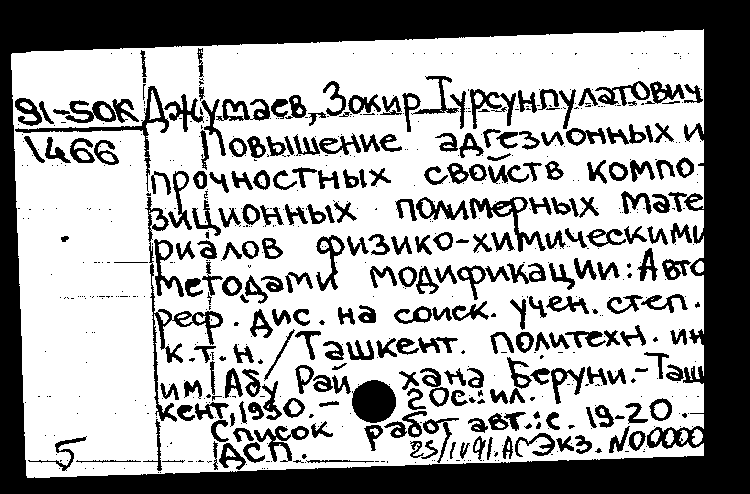 91-50К Джумаев, Зокир Турсунпулатович
1466 Повышение адгезионных и
прочностных свойств компо-
зиционных полимерных мате
риалов физико-химическими
методами модификации: Авто
реф. дис. на соиск. учен. степ.
к.т.н. / Ташкент. политехн. ин
им. Абу Рай хана Беруни.-Таш
кент, 1990. - 20с.: ил.
Список работ авт.: с. 19-20.
5 ДСП. 25/IV91. АС Экз. N00000